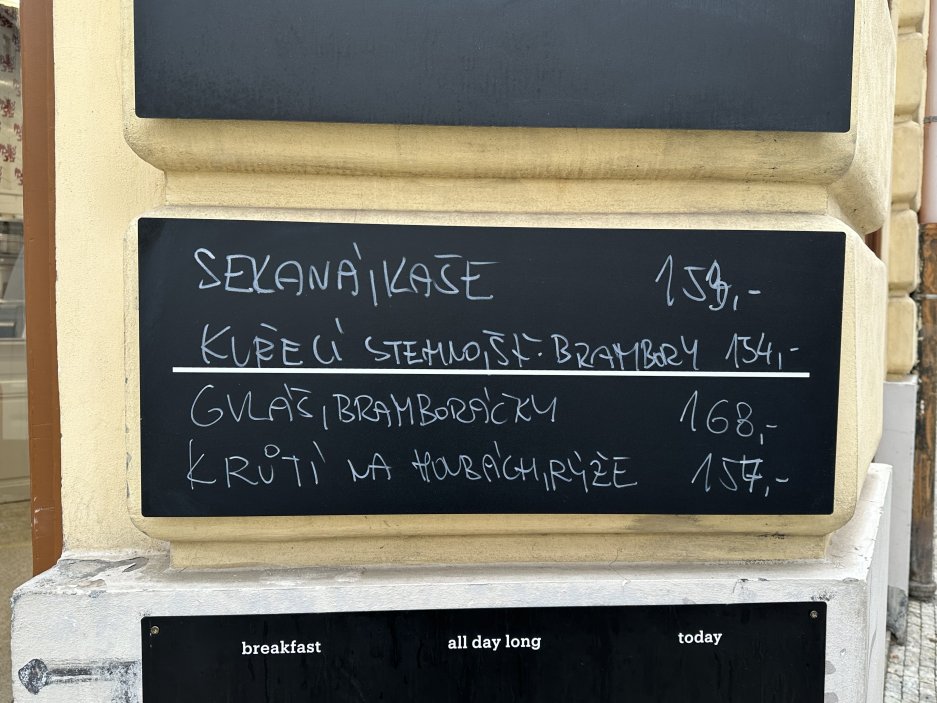 SEKANÁ, KAŠE 159,-
KUŘECÍ STEHNO, ŠŤ. BRAMBORY 154,-
GULÁŠ, BRAMBORÁČKY 168,-
KRŮTÍ NA HOUBÁCH, RÝŽE 157,-
breakfast all day long today